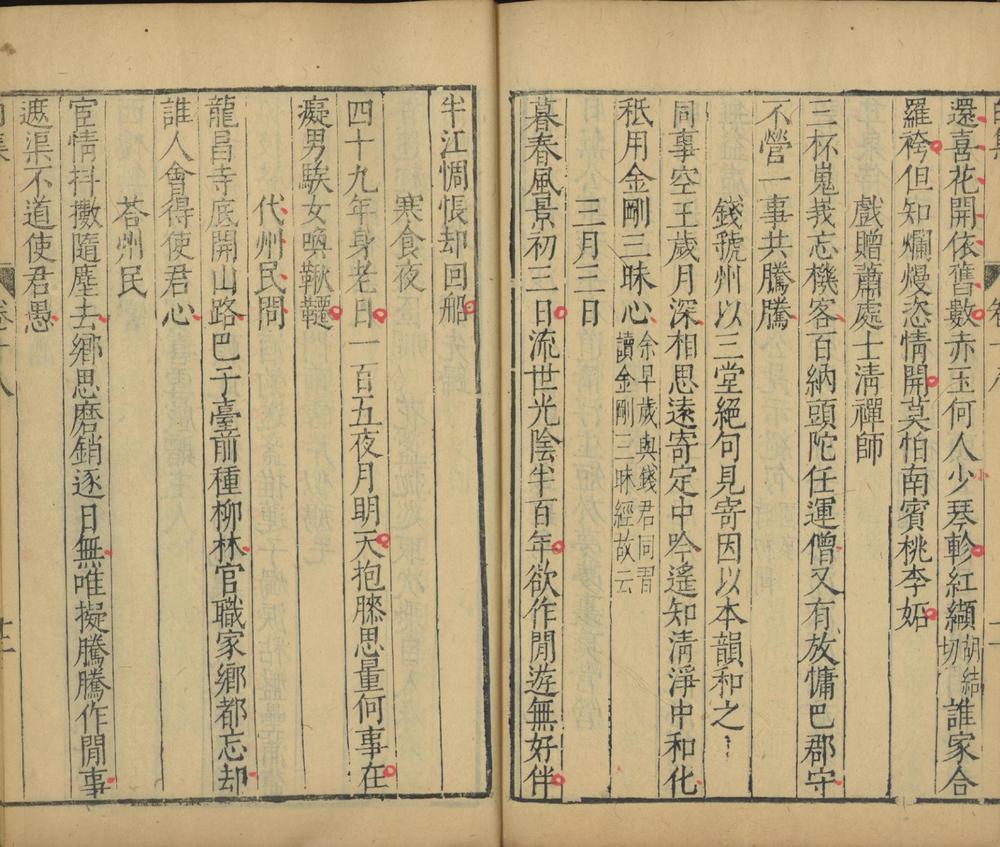 還喜花開依舊數赤玉何人少琴軫紅纈胡結切誰家合
羅袴但知爛熳恣情開莫怕南賓桃李妬
戲贈蕭處士淸禪師
三杯嵬峩忘機客百納頭陀任運僧又有放慵巴郡守
不營一事共騰騰
錢虢州以三堂絕句見寄因以本韻和之
同事空王歲月深相思遠寄定中吟遙知淸淨中和化
秖用金剛三昧心余早歲與錢君同習讀金剛三昧經故云
三月三日
暮春風景初三日流世光陰半百年欲作閒遊無好伴
半江惆悵却回船
寒食夜
四十九年身老日一百五夜月明天抱膝思量何事在
癡男騃女喚鞦韆
代州民問
龍昌寺底開山路巴子臺前種柳林官職家鄉都忘却
誰人會得使君心
荅州民
宦情抖擻隨塵去鄉思磨銷逐日無唯擬騰騰作閒事
遮渠不道使君愚